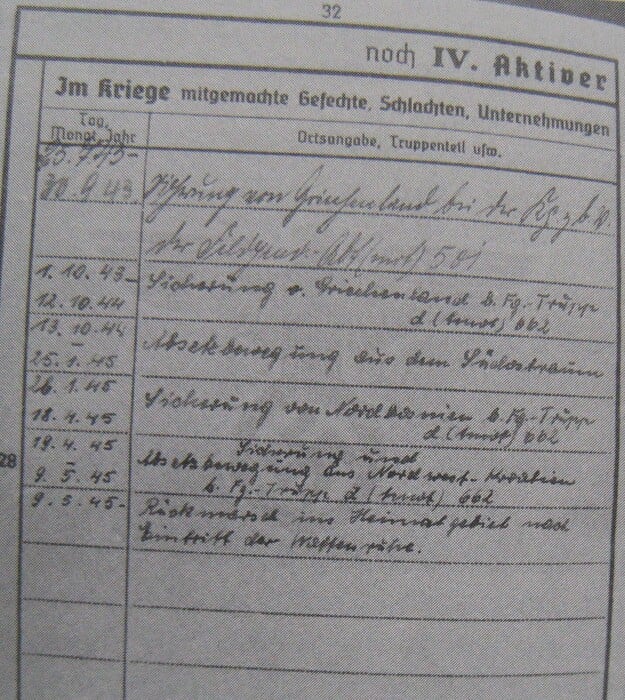 32
noch IV. Aktiver
Im Kriege mitgemachte Gefechte, Schlachten, Unternehmungen
Tag, Monat, Jahr
Ortsangabe, Truppenteil usw.
25.7.43-
30.9.43. Sicherung von Griechenland bei der
der Feldgend.-Abt. (mot) 501
1.10.43- Sicherung v. Griechenland b. Fg.-Trupp
12.10.44 d (tmot) 662
13.10.44
- Absetzbewegung aus dem Südostraum
25.1.45
26.1.45 Sicherung von Nordbosnien b. Fg.-Trupp
18.4.45 d (tmot) 662
19.4.45 Sicherung und
28 - Absetzbewegung aus Nordwest-Kroatien
9.5.45 b. Fg.-Trupp d (tmot) 662
9.5.45- Rückmarsch ins Heimatgebiet nach
Eintritt der Waffenruhe.